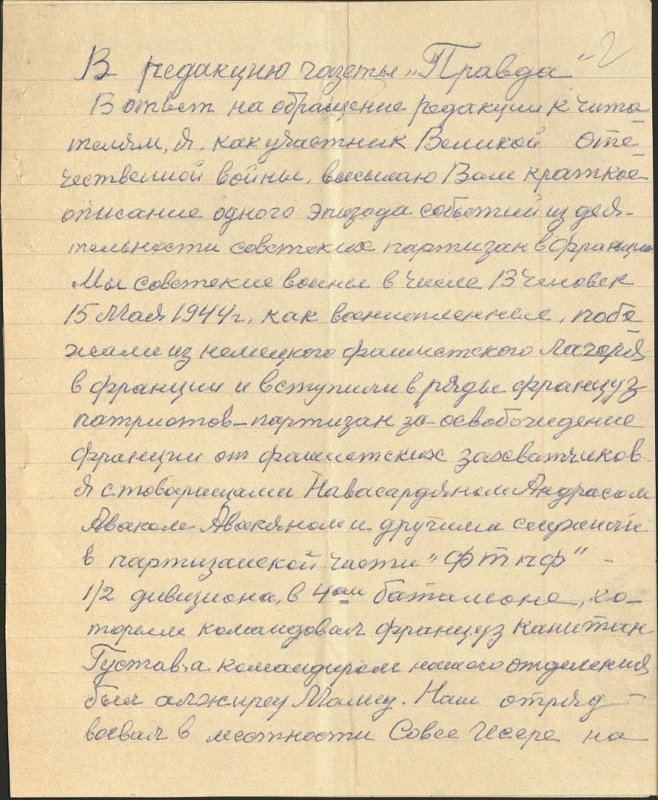 2
В редакцию газеты „Правда"
В ответ на обращение редакции к чита-
телям, я, как участник Великой Оте-
чественной войны, высылаю Вам краткое
описание одного эпизода событий из дея-
тельности советских партизан в Франции
Мы советские воины в числе 13 человек
15 Мая 1944 г. как военнопленные, побе-
жали из немецкого фашистского лагеря
в франции и вступили в ряды француз
патриотов-партизан за освобождение
франции от фашистских захватчиков
я с товарищами Навасардяном Андрасом
Аваком Авакяном и другими служили
в партизанской части "ФТПФ" –
1/2 дивизиона, в 4ом баталионе, ко-
торым командовал француз капитан
Густав, а командиром нашего отделения
был алжирец Наш отряд –
воевал в местности Совее Изере на